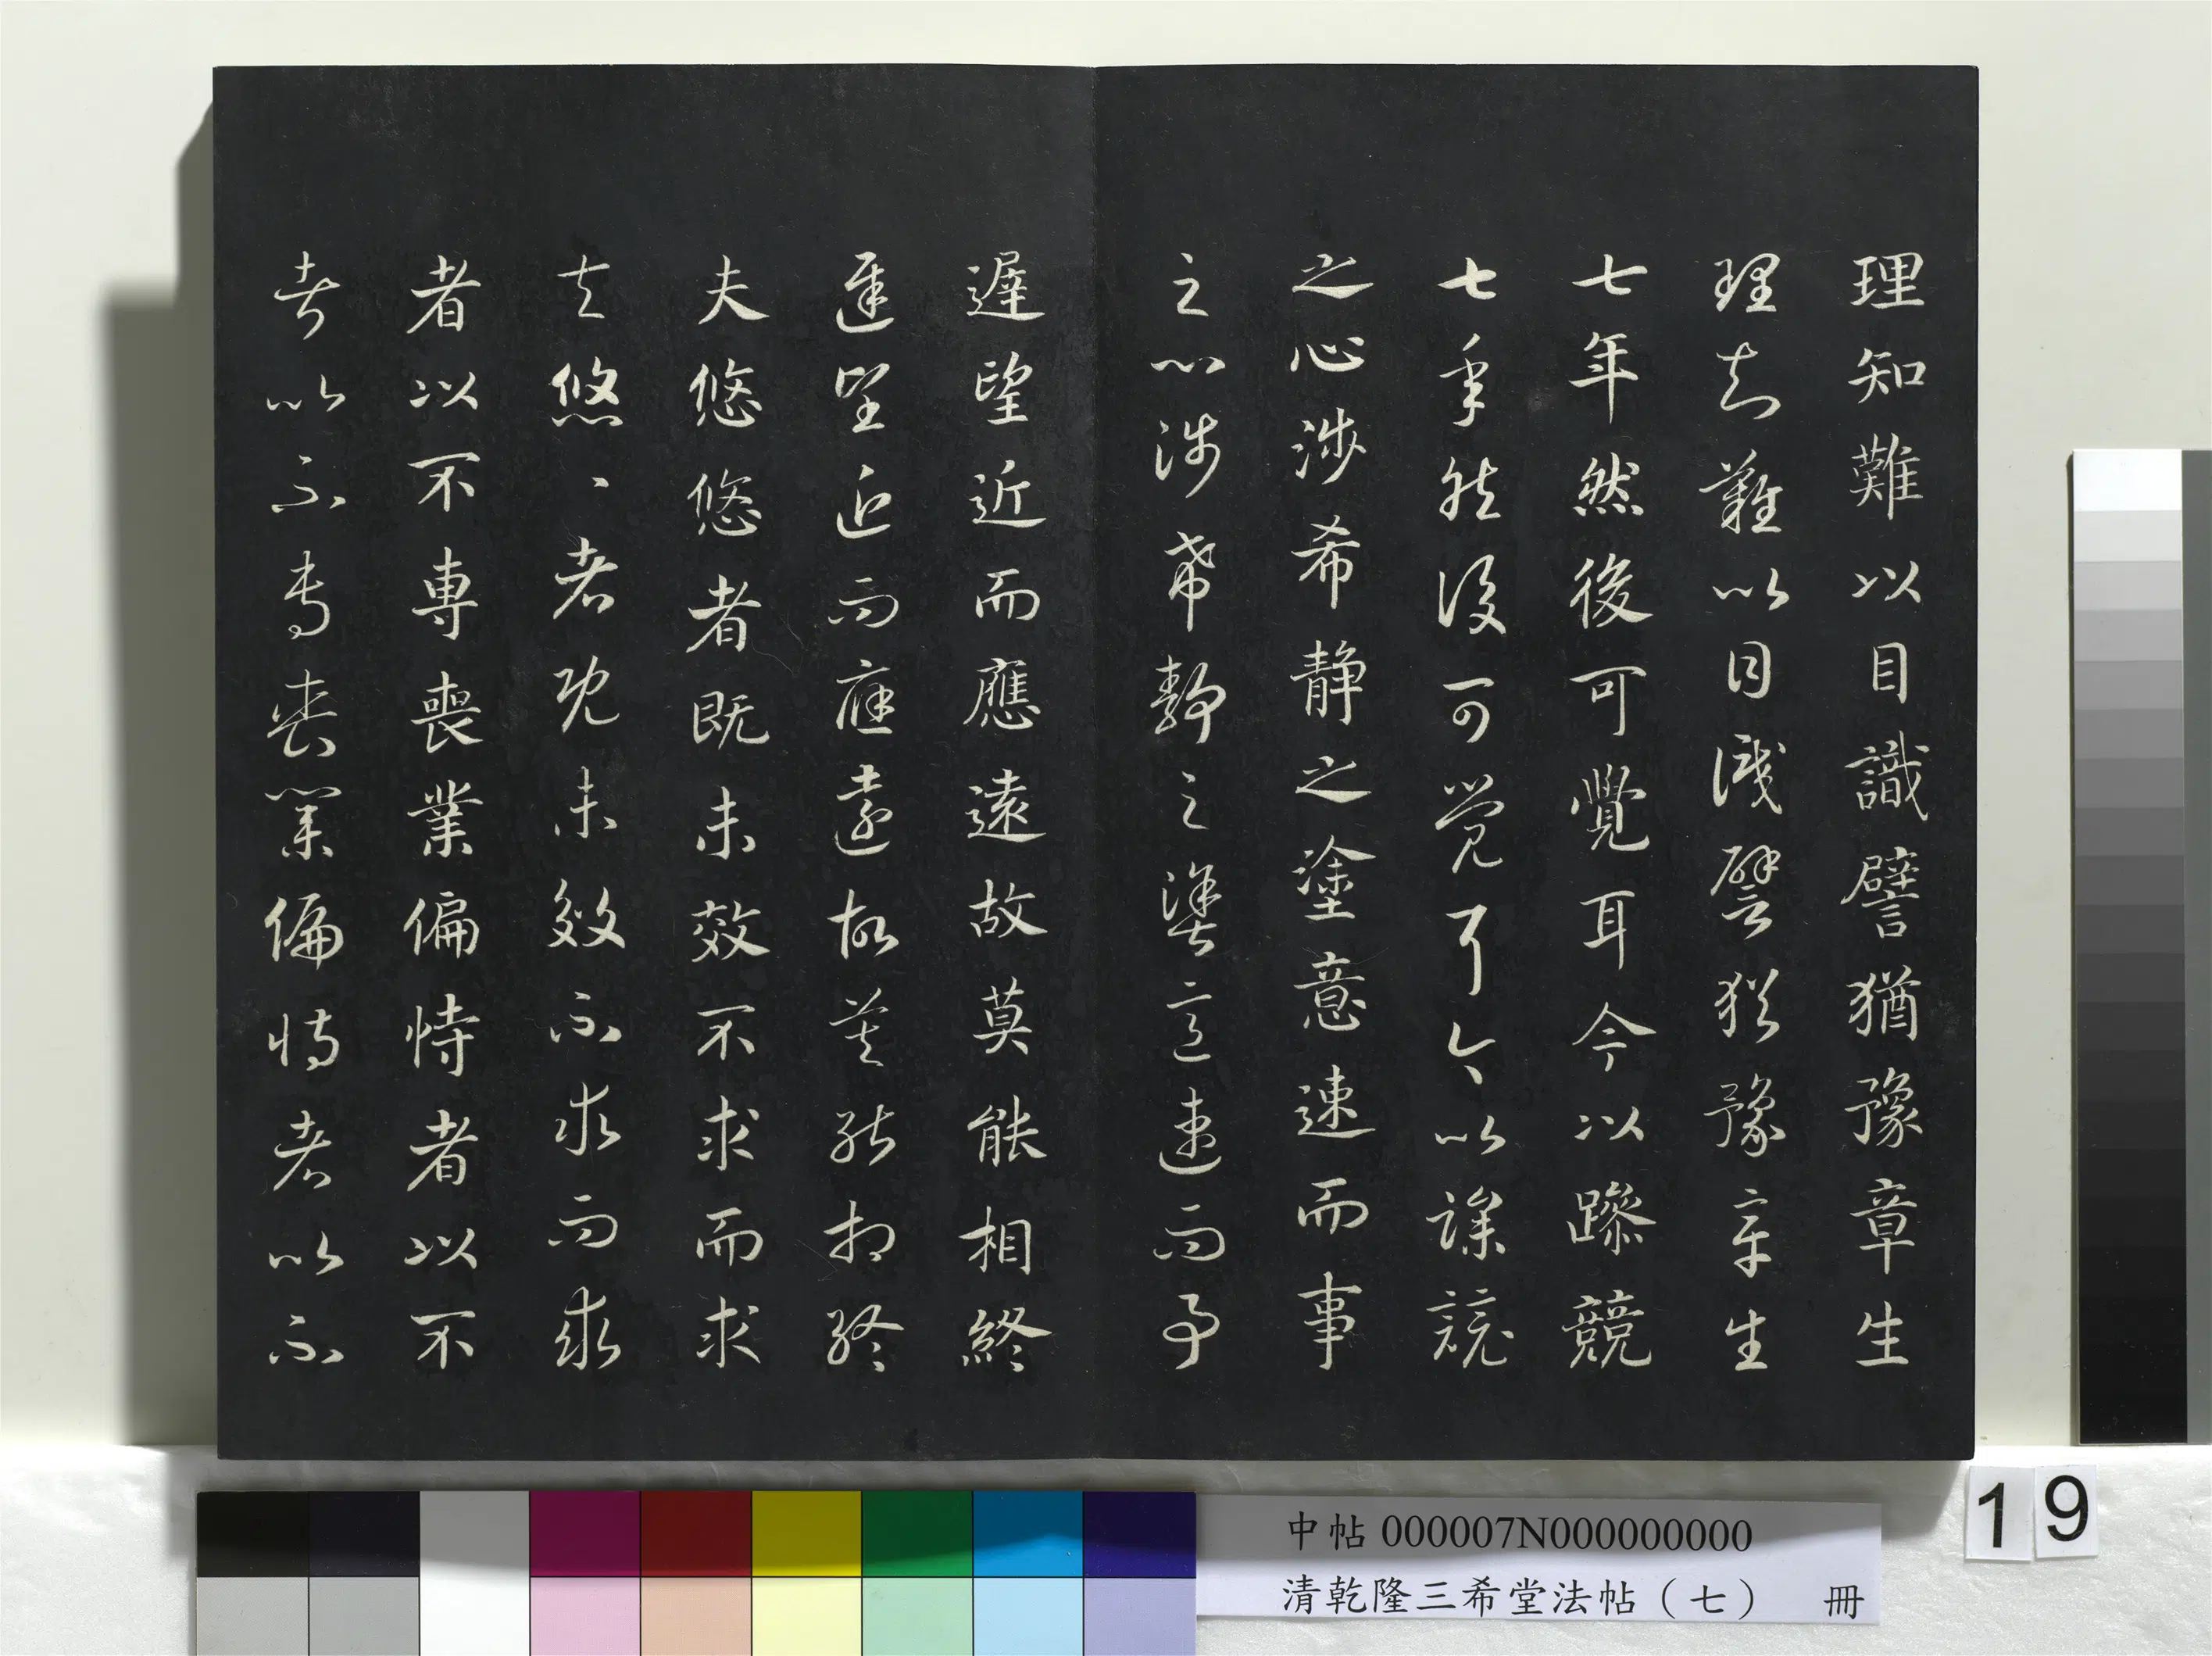 理知難以目識譬猶豫章生
理知難以目識譬猶豫章生
七年然後可覺耳今以躁競
七年然後可覺耳今以躁競
之心涉希静之塗意速而事
之心涉希静之塗意速而事
遲望近而應遠故莫能相終
遲望近而應遠故莫能相終
夫悠悠者既未效不求而求
夫悠、者既未效不求而求
者以不專喪業偏恃者以不
者以不專喪業偏恃者以不
中帖 000007N000000000
清乾隆三希堂法帖（七） 冊
19